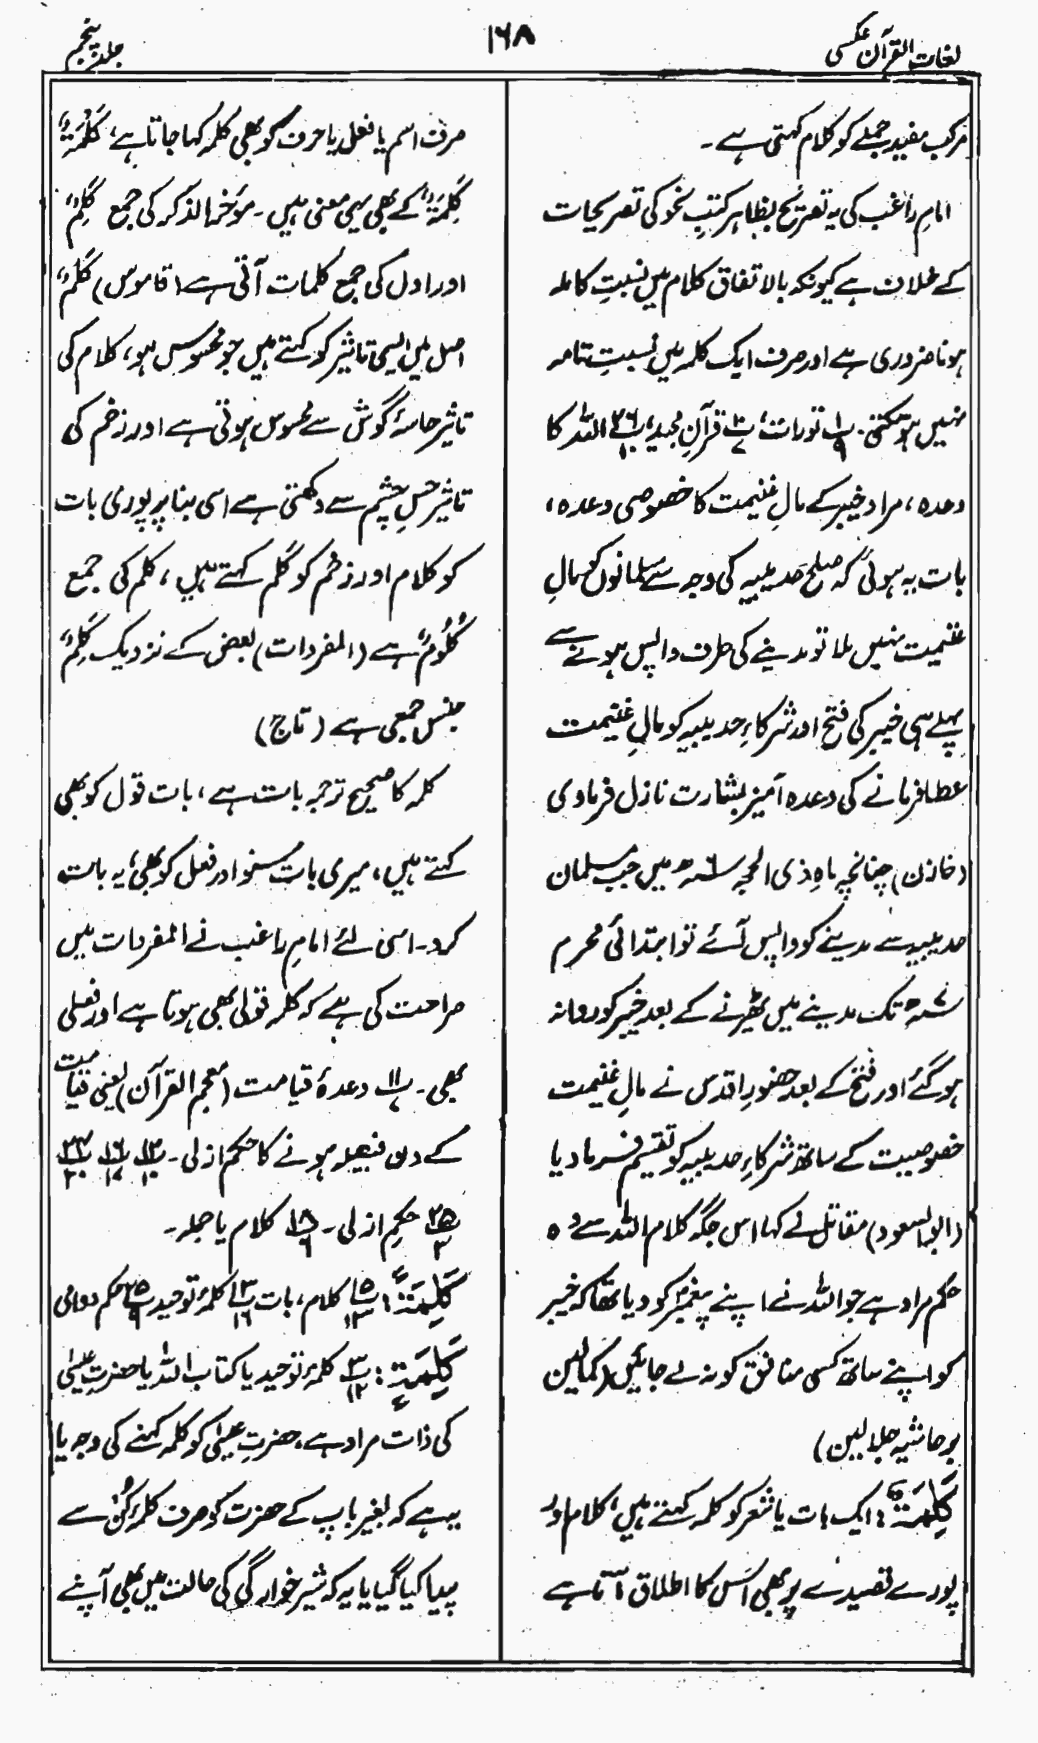 لغات القرآن عکسی
۱۶۸
جلد پنجم
مرکب مفید جملے کو کلام کہتی ہے۔
امامِ راغب کی یہ تصریح بظاہر کتبِ نحو کی تصریحات
کے خلاف ہے کیونکہ بالاتفاق کلام میں نسبتِ کاملہ
ہونا ضروری ہے اور صرف ایک کلمہ میں نسبتِ تامہ
نہیں ہوسکتی۔ پ۱/۹ تورات، پ۳/۷ قرآنِ مجید، پ۲۶/۱۰ اللہ کا
وعدہ، مراد خیبر کے مالِ غنیمت کا خصوصی وعدہ،
بات یہ ہوئی کہ صلح حدیبیہ کی وجہ سے مسلمانوں کو مالِ
غنیمت نہیں ملا تو مدینے کی طرف واپس ہونے سے
پہلے ہی خیبر کی فتح اور شرکاءِ حدیبیہ کو مالِ غنیمت
عطا فرمانے کی وعدہ آمیز بشارت نازل فرما دی
(خازن) چنانچہ ماہِ ذی الحجہ ۶ھ میں جب مسلمان
حدیبیہ سے مدینے کو واپس آئے تو ابتدائی محرم
۷ھ تک مدینے میں ٹھیرنے کے بعد خیبر کو روانہ
ہو گئے اور فتح کے بعد حضورِ اقدس نے مالِ غنیمت
خصوصیت کے ساتھ شرکاءِ حدیبیہ کو تقسیم فرما دیا
(ابو السعود) مقاتل نے کہا اس جگہ کلام اللہ سے وہ
حکم مراد ہے جو اللہ نے اپنے پیغمبر کو دیا تھا کہ خیبر
کو اپنے ساتھ کسی منافق کو نہ لے جائیں (کمالین
بر حاشیہ جلالین)
كَلِمَةٌ: ایک بات یا شعر کو کلمہ کہتے ہیں، کلام اور
پورے قصیدے پر بھی اس کا اطلاق آتا ہے
صرف اسم یا فعل یا حرف کو بھی کلمہ کہا جاتا ہے، كَلْمَةٌ،
كِلْمَةٌ، کے بھی یہی معنی ہیں۔ مؤخر الذکر کی جمع كِلَمٌ
اور اول کی جمع کلمات آتی ہے (قاموس) كَلْمٌ
اصل میں ایسی تاثیر کو کہتے ہیں جو محسوس ہو، کلام کی
تاثیر حاسۂ گوش سے محسوس ہوتی ہے اور زخم کی
تاثیر حسِ چشم سے دکھتی ہے اسی بنا پر پوری بات
کو کلام اور زخم کو كَلْم کہتے ہیں، کلم کی جمع
كُلُومٌ ہے (المفردات) بعض کے نزدیک كَلِمٌ
جنس جمعی ہے (تاج)
کلمہ کا صحیح ترجمہ بات ہے، بات قول کو بھی
کہتے ہیں، میری بات سنو اور فعل کو بھی، یہ بات
کرو۔ اسی لئے امامِ راغب نے المفردات میں
صراحت کی ہے کہ کلمہ قولی بھی ہوتا ہے اور فعلی
بھی۔ پ۱۱/۷ وعدۂ قیامت (معجم القرآن) یعنی قیامت
کے دن فیصلہ ہونے کا حکم ازلی۔ پ۱۲/۱۰ پ۱۶/۱۷ پ۲۴/۲۰
پ۲۵/۳ حکمِ ازلی۔ پ۱۸/۶ کلام یا جملہ۔
كَلِمَةً: پ۱۵/۱۳ کلام، بات پ۱۳/۱۶ کلمۂ توحید پ۲۵/۹ حکم دوامی
كَلِمَةٍ: پ۳/۱۲ کلمۂ توحید یا کتاب اللہ یا حضرتِ عیسیٰ
کی ذات مراد ہے، حضرتِ عیسیٰ کو کلمہ کہنے کی وجہ یا
یہ ہے کہ بغیر باپ کے حضرت کو صرف کلمۂ کُنْ سے
پیدا کیا گیا یا یہ کہ شیر خوارگی کی حالت میں بھی آپ نے